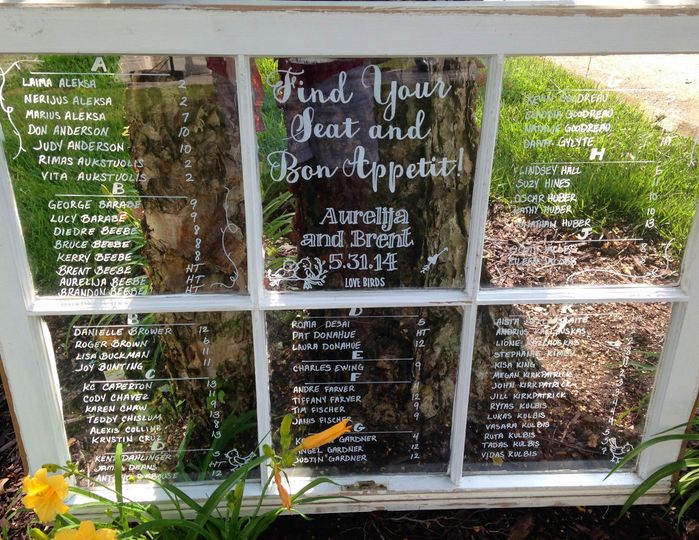 A
LAIMA ALEKSA 2
NERIJUS ALEKSA 2
MARIUS ALEKSA 7
DON ANDERSON 10
JUDY ANDERSON 10
RIMAS AUKSTUOLIS 2
VITA AUKSTUOLIS 2
B
GEORGE BARABE 9
LUCY BARABE 9
DIEDRE BEEBE 8
BRUCE BEEBE 8
KERRY BEEBE 8
BRENT BEEBE HT
AURELIJA BEEBE HT
BRANDON BEEBE HT
Find Your
Seat and
Bon Appetit!
Aurelija
and Brent
5.31.14
LOVE BIRDS
GOODREAU
GOODREAU
GOODREAU
GYLYTE
H
LINDSEY HALL
SUZY HINES
OSCAR HUBER 10
KATHY HUBER 10
JONATHAN HUBER 13
J
B
DANIELLE BROWER 12
ROGER BROWN 6
LISA BUCKMAN 11
JOY BUNTING 11
C
KC CAPERTON 13
CODY CHAVEZ 11
KAREN CHAW 9
TEDDY CHISLUM 13
ALEXIS COLLINE 8
KRYSTIN CRUZ
D
KENT DANLINGER 5
JAMI DEANS HT
12
D
ROMA DESAI 5
PAT DONAHUE HT
LAURA DONAHUE 12
E
CHARLES EWING
F
ANDRE FARVER
TIFFANY FARVER 12
TIM FISCHER 9
JANIS FISCHER 9
G
GARDNER
ANGEL GARDNER
JUSTIN GARDNER 12
K
AISTA
ANDRIUS KAZLAUSKAS
LIONE KAZLAUSKAS
STEPHANIE
KISA KING
MEGAN KIRKPATRICK
JOHN KIRKPATRICK
JILL KIRKPATRICK
RYTAS KULBIS
LUKAS KULBIS
VASARA KULBIS
RUTA KULBIS
TADAS KULBIS
VIDAS KULBIS